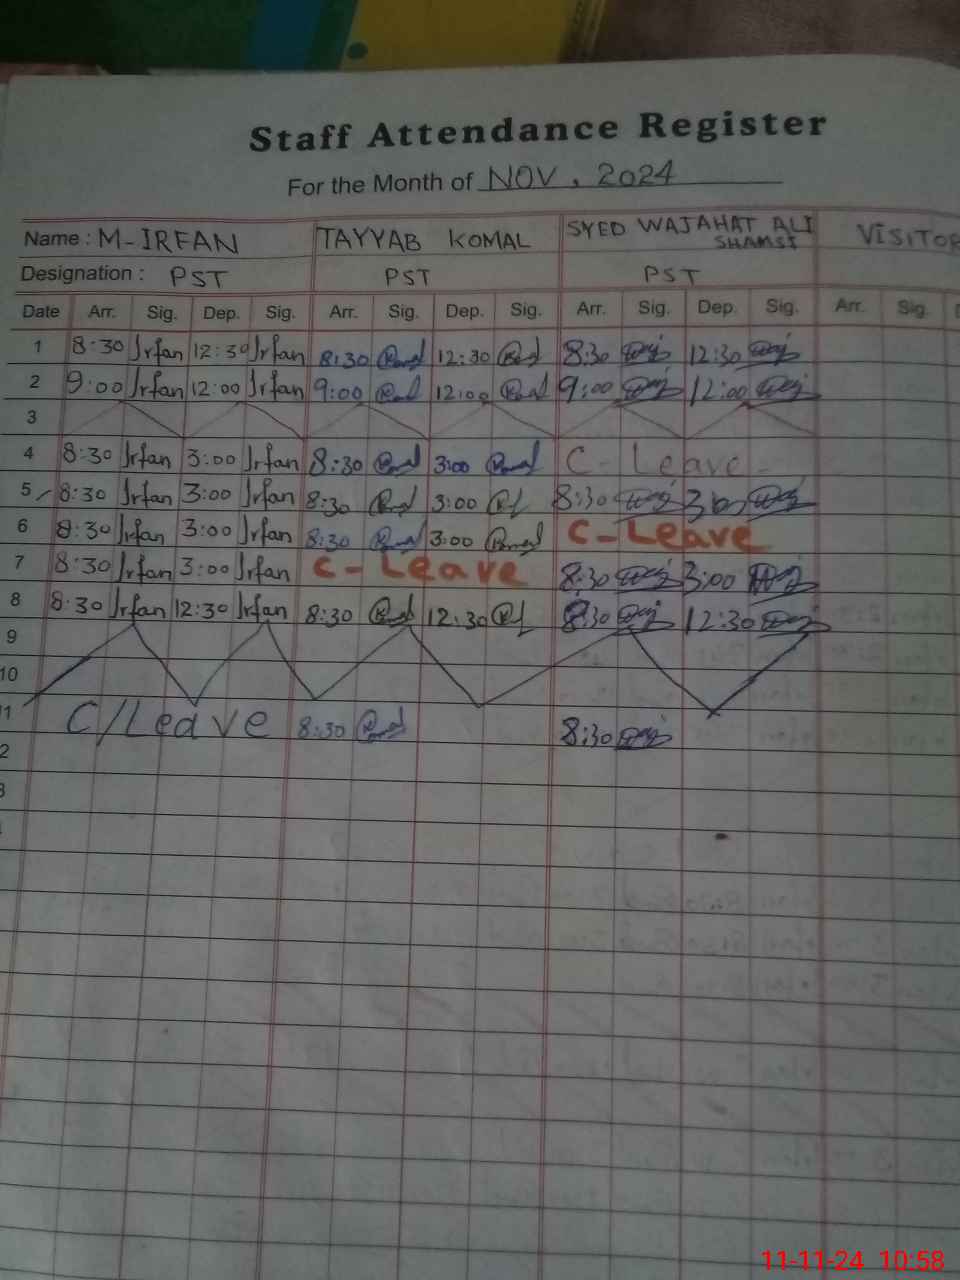 Staff Attendance Register
For the Month of NOV, 2024
Name : M-IRFAN TAYYAB KOMAL SYED WAJAHAT ALI SHAMSI VISITOR
Designation : PST PST PST
Date Arr. Sig. Dep. Sig. Arr. Sig. Dep. Sig. Arr. Sig. Dep. Sig. Arr. Sig.
1 8:30 Irfan 12:30 Irfan 8:30 12:30 8:30 12:30
2 9:00 Irfan 12:00 Irfan 9:00 12:00 9:00 12:00
3
4 8:30 Irfan 3:00 Irfan 8:30 3:00 C-Leave-
5 8:30 Irfan 3:00 Irfan 8:30 3:00 8:30
6 8:30 Irfan 3:00 Irfan 8:30 3:00 C-Leave
7 8:30 Irfan 3:00 Irfan C-Leave 8:30 3:00
8 8:30 Irfan 12:30 Irfan 8:30 12:30 8:30 12:30
9
10
1 C/Leave 8:30 8:30
2
3
11-11-24 10:58